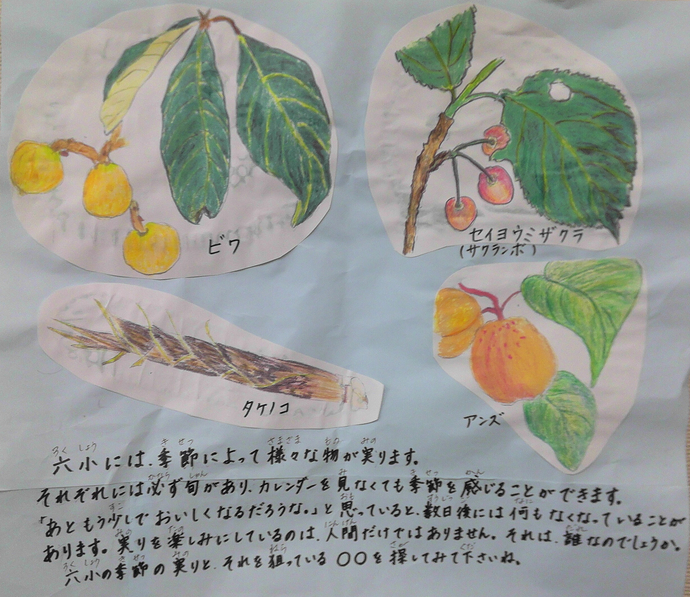 ビワ
セイヨウミザクラ
(サクランボ)
タケノコ
アンズ
六小には、季節によって様々な物が実ります。
それぞれには必ず旬があり、カレンダーを見なくても季節を感じることができます。
「あともう少しでおいしくなるだろうな。」と思っていると、数日後には何もなくなっていることが
あります。実りを楽しみにしているのは、人間だけではありません。それは、誰なのでしょうか。
六小の季節の実りと、それを狙っている〇〇を探してみて下さいね。